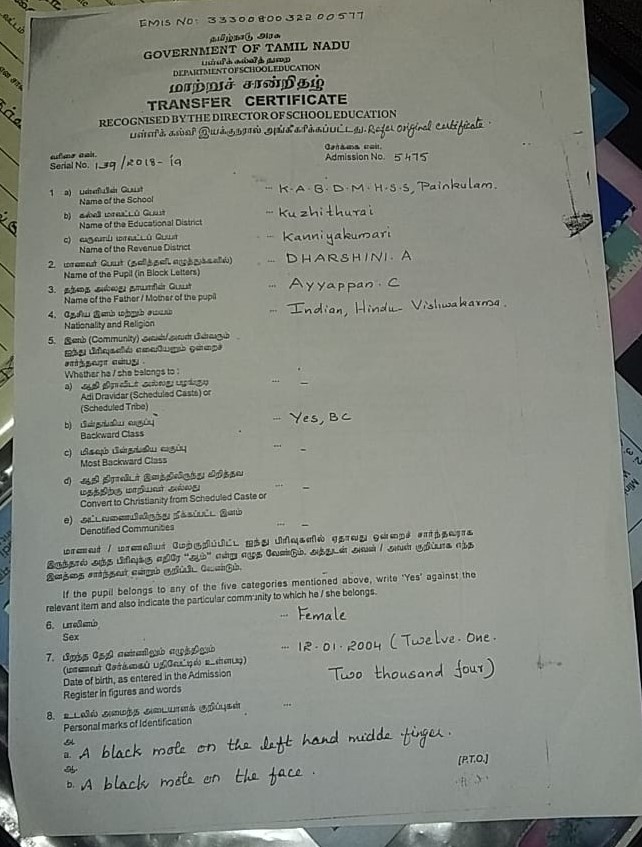 EMIS NO: 33300800322 00577
தமிழ்நாடு அரசு
GOVERNMENT OF TAMIL NADU
பள்ளிக் கல்வித் துறை
DEPARTMENT OF SCHOOL EDUCATION
மாற்றுச் சான்றிதழ்
TRANSFER CERTIFICATE
RECOGNISED BY THE DIRECTOR OF SCHOOL EDUCATION
பள்ளிக் கல்வி இயக்குநரால் அங்கீகரிக்கப்பட்டது. Refer original certificate.
வரிசை எண். சேர்க்கை எண்.
Serial No. 139/2018-19 Admission No. 5475
1 a) பள்ளியின் பெயர் ... K.A.B.D.M.H.S.S, Painkulam.
Name of the School
b) கல்வி மாவட்டப் பெயர் ... Kuzhithurai
Name of the Educational District
c) வருவாய் மாவட்டப் பெயர் ... Kanniyakumari
Name of the Revenue District
2. மாணவர் பெயர் (தனித்தனி எழுத்துக்களில்) ... DHARSHINI. A
Name of the Pupil (in Block Letters)
3. தந்தை அல்லது தாயாரின் பெயர் ... Ayyappan. C
Name of the Father / Mother of the pupil
4. தேசிய இனம் மற்றும் சமயம் ... Indian, Hindu-Vishwakarma.
Nationality and Religion
5. இனம் (Community) அவன்/அவள் பின்வரும்
ஐந்து பிரிவுகளில் எவையேனும் ஒன்றைச்
சார்ந்தவரா என்பது
Whether he / she belongs to :
a) ஆதி திராவிடர் அல்லது பழங்குடி ... –
Adi Dravidar (Scheduled Casts) or
(Scheduled Tribe)
b) பின்தங்கிய வகுப்பு ... Yes, BC
Backward Class
c) மிகவும் பின்தங்கிய வகுப்பு ... –
Most Backward Class
d) ஆதி திராவிடர் இனத்திலிருந்து கிறித்தவ
மதத்திற்கு மாறியவர் அல்லது ... –
Convert to Christianity from Scheduled Caste or
e) அட்டவணையிலிருந்து நீக்கப்பட்ட இனம் ... –
Denotified Communities
மாணவர் / மாணவியர் மேற்குறிப்பிட்ட ஐந்து பிரிவுகளில் ஏதாவது ஒன்றைச் சார்ந்தவராக
இருந்தால் அந்த பிரிவுக்கு எதிரே "ஆம்" என்று எழுத வேண்டும். அத்துடன் அவன் / அவள் குறிப்பாக எந்த
இனத்தை சார்ந்தவர் என்றும் குறிப்பிட வேண்டும்.
If the pupil belongs to any of the five categories mentioned above, write 'Yes' against the
relevant item and also indicate the particular community to which he / she belongs.
6. பாலினம் ... Female
Sex
7. பிறந்த தேதி எண்ணிலும் எழுத்திலும் ... 12.01.2004 (Twelve. One.
(மாணவர் சேர்க்கைப் பதிவேட்டில் உள்ளபடி)
Date of birth, as entered in the Admission Two thousand four)
Register in figures and words
8. உடலில் அமைந்த அடையாளக் குறிப்புகள் ...
Personal marks of Identification
அ.
a. A black mole on the left hand midde finger.
ஆ. [P.T.O.]
b. A black mole on the face.